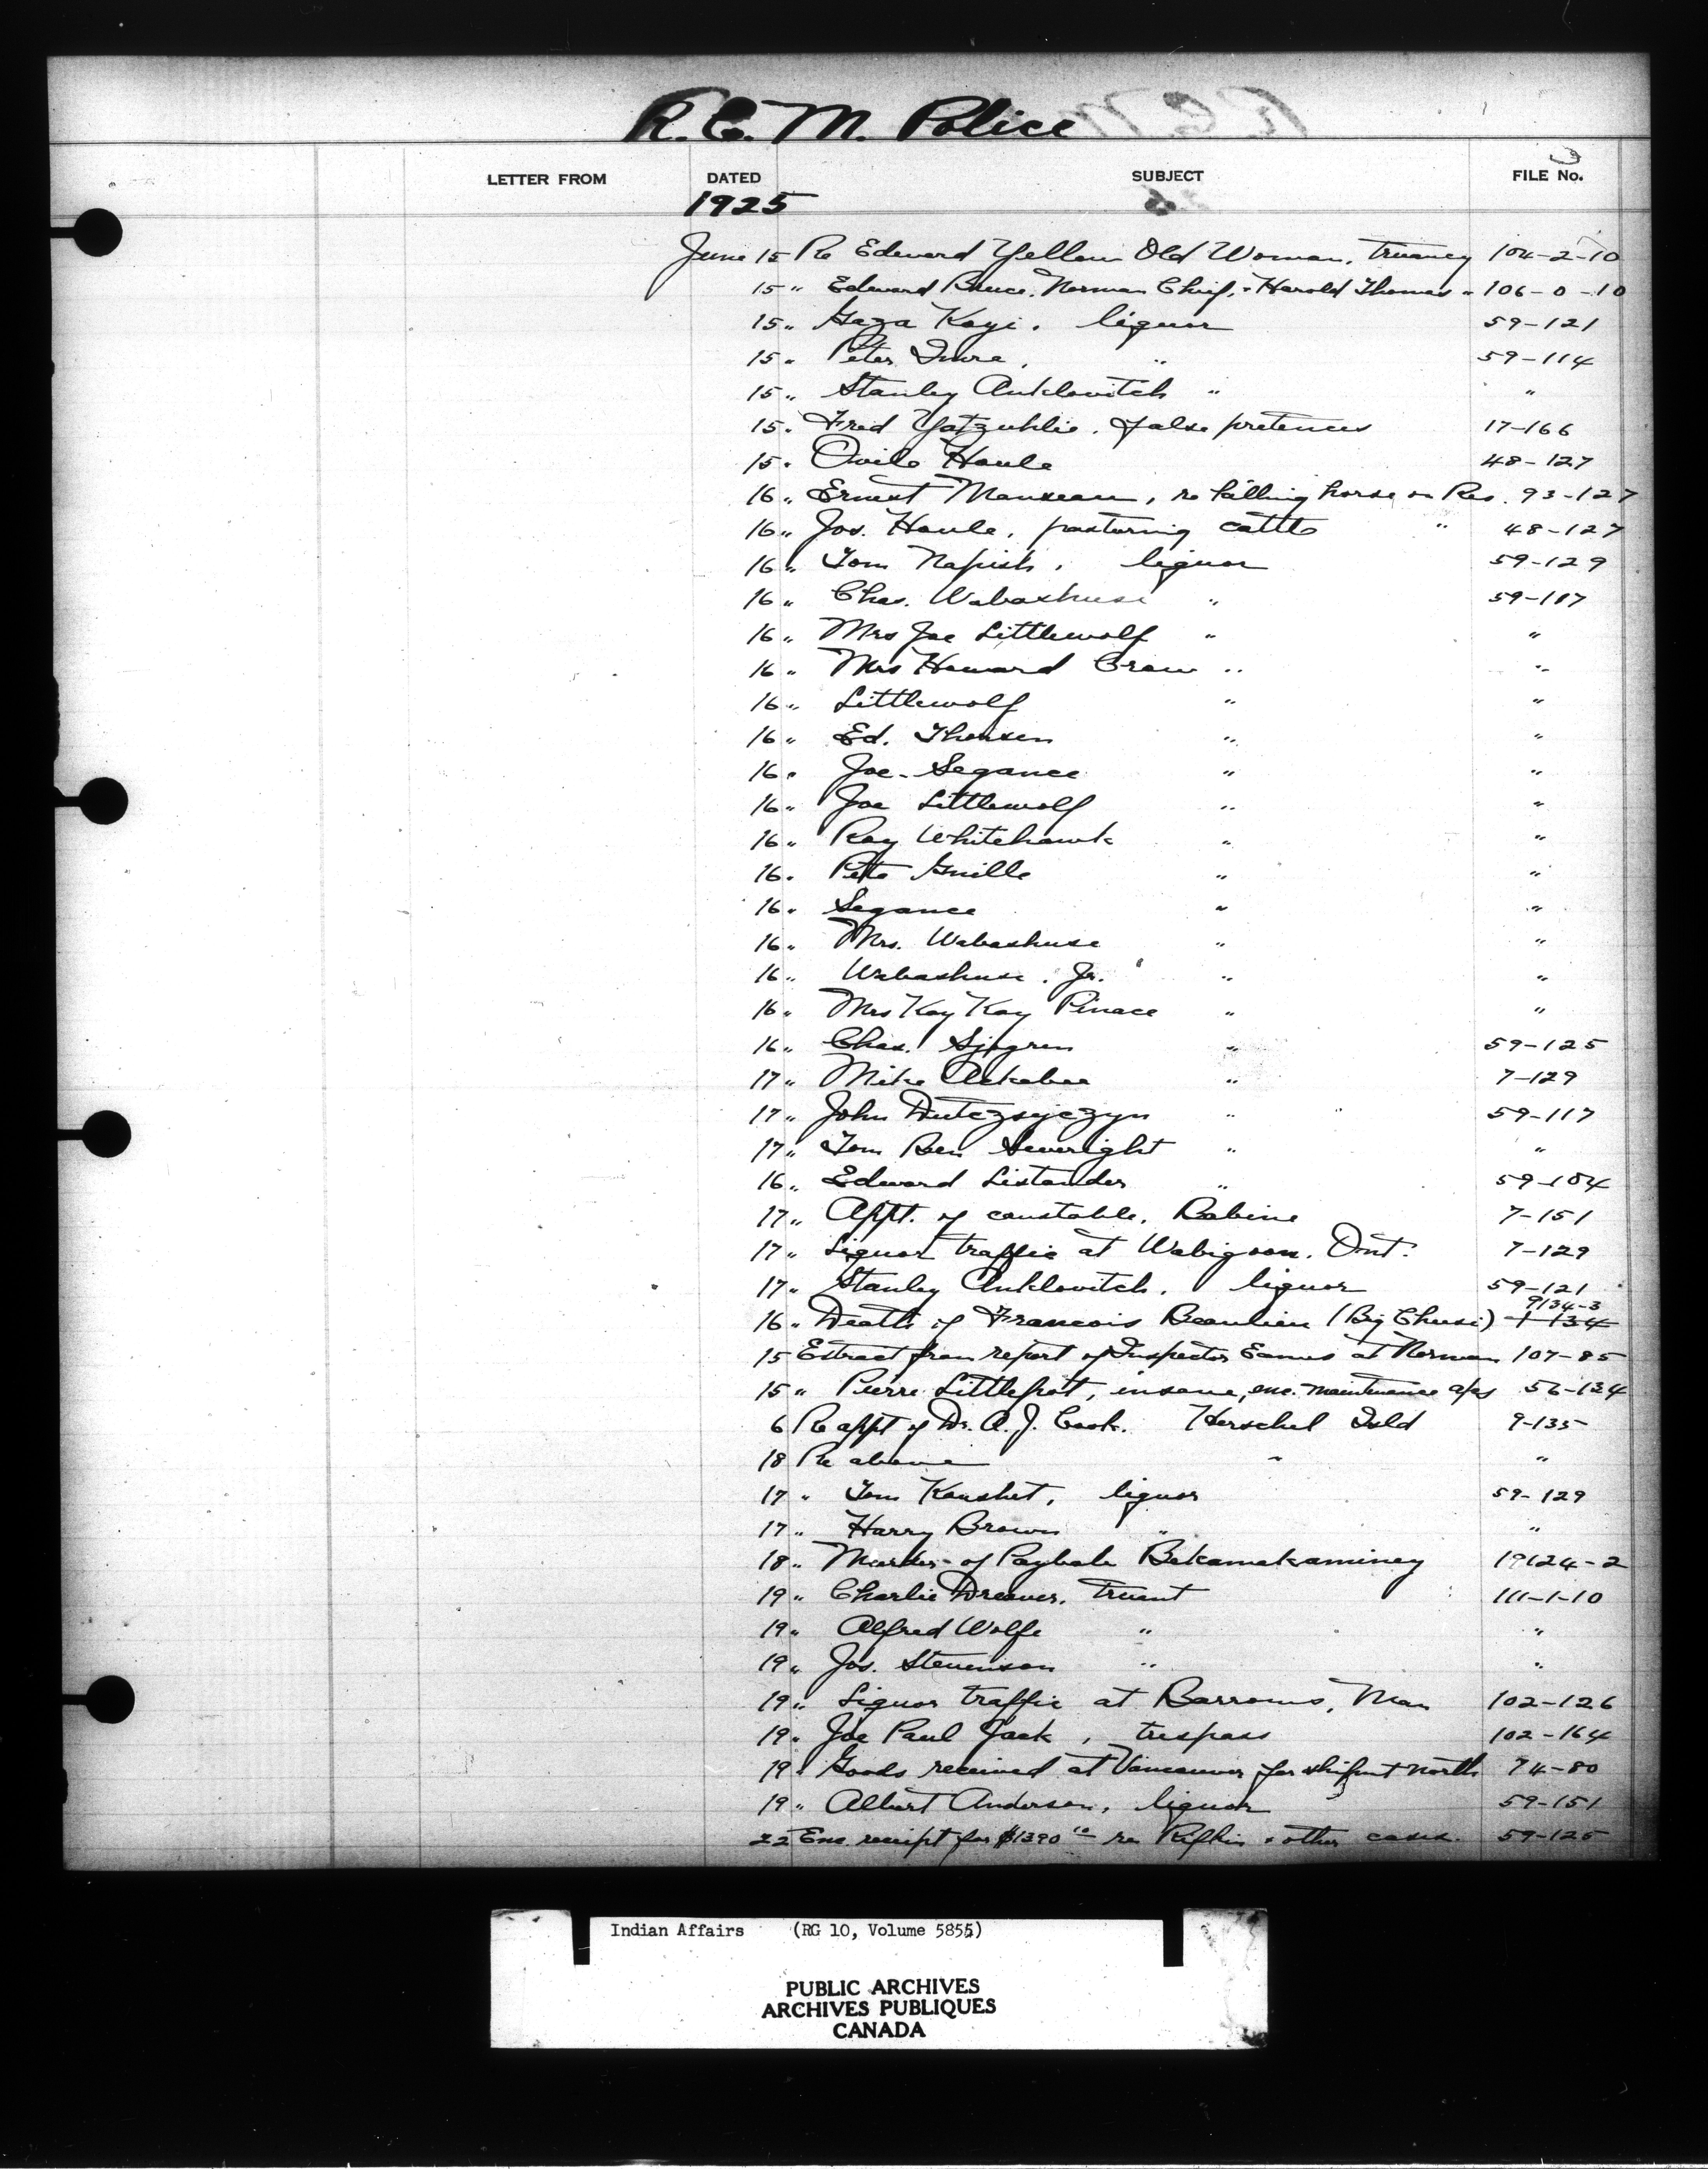 R.C.M. Police
LETTER FROM DATED SUBJECT FILE No.
1925
June 15 Re Edward Yellow Old Woman, truancy 104-2-10
15 " Edward Bruce, Norman Chief, & Harold Thomas " 106-0-10
15 " Gaza Kayi, liquor 59-121
15 " Peter Imre, " 59-114
15 " Stanley Anklovitch " "
15 " Fred Yatzuhlie, false pretences 17-166
15 " Ovile Houle 48-127
16 " Ernest Manseau, re killing horse on Res. 93-127
16 " Jos. Houle, pasturing cattle " 48-127
16 " Tom Napish, liquor 59-129
16 " Chas. Wabashuse " 59-117
16 " Mrs Joe Littlewolf " "
16 " Mrs Howard Crow " "
16 " Littlewolf " "
16 " Ed. Thorsen " "
16 " Joe Segance " "
16 " Joe Littlewolf " "
16 " Ray Whitehawk " "
16 " Pete Guille " "
16 " Segance " "
16 " Mrs. Wabashuse " "
16 " Wabashuse, Jr. " "
16 " Mrs Kay Kay Pinace " "
16 " Chas. Sjogren " 59-125
17 " Mike Ackabee " 7-129
17 " John Dutczsyczyn " 59-117
17 " Tom Ben Seweright " "
16 " Edward Listander " 59-104
17 " Appt. of constable, Babine 7-151
17 " Liquor traffic at Wabigoon, Ont. 7-129
17 " Stanley Anklovitch, liquor 59-121
9134-3
16 " Death of Francois Beaulieu (Big Cheese) 1-134
15 Extract from report of Inspector Eames at Norman 107-85
15 " Pierre Littlefoot, insane, enc. maintenance a/cs 56-134
6 Re appt of Dr. A. J. Cook. Herschel Isld 9-135
18 Re above " "
17 " Tom Kaushet, liquor 59-129
17 " Harry Brown " "
18 " Murder of Paybah Bekamekaminey 19124-2
19 " Charlie Dreaver, truant 111-1-10
19 " Alfred Wolfe " "
19 " Jos. Stevenson " "
19 " Liquor traffic at Barrows, Man 102-126
19 " Joe Paul Jack, trespass 102-164
19 " Goods received at Vancouver for shipmt north 74-80
19 " Albert Anderson, liquor 59-151
22 Enc. receipt for $1390 10 re Rifkin & other cases. 59-125
Indian Affairs (RG 10, Volume 5855)
PUBLIC ARCHIVES
ARCHIVES PUBLIQUES
CANADA